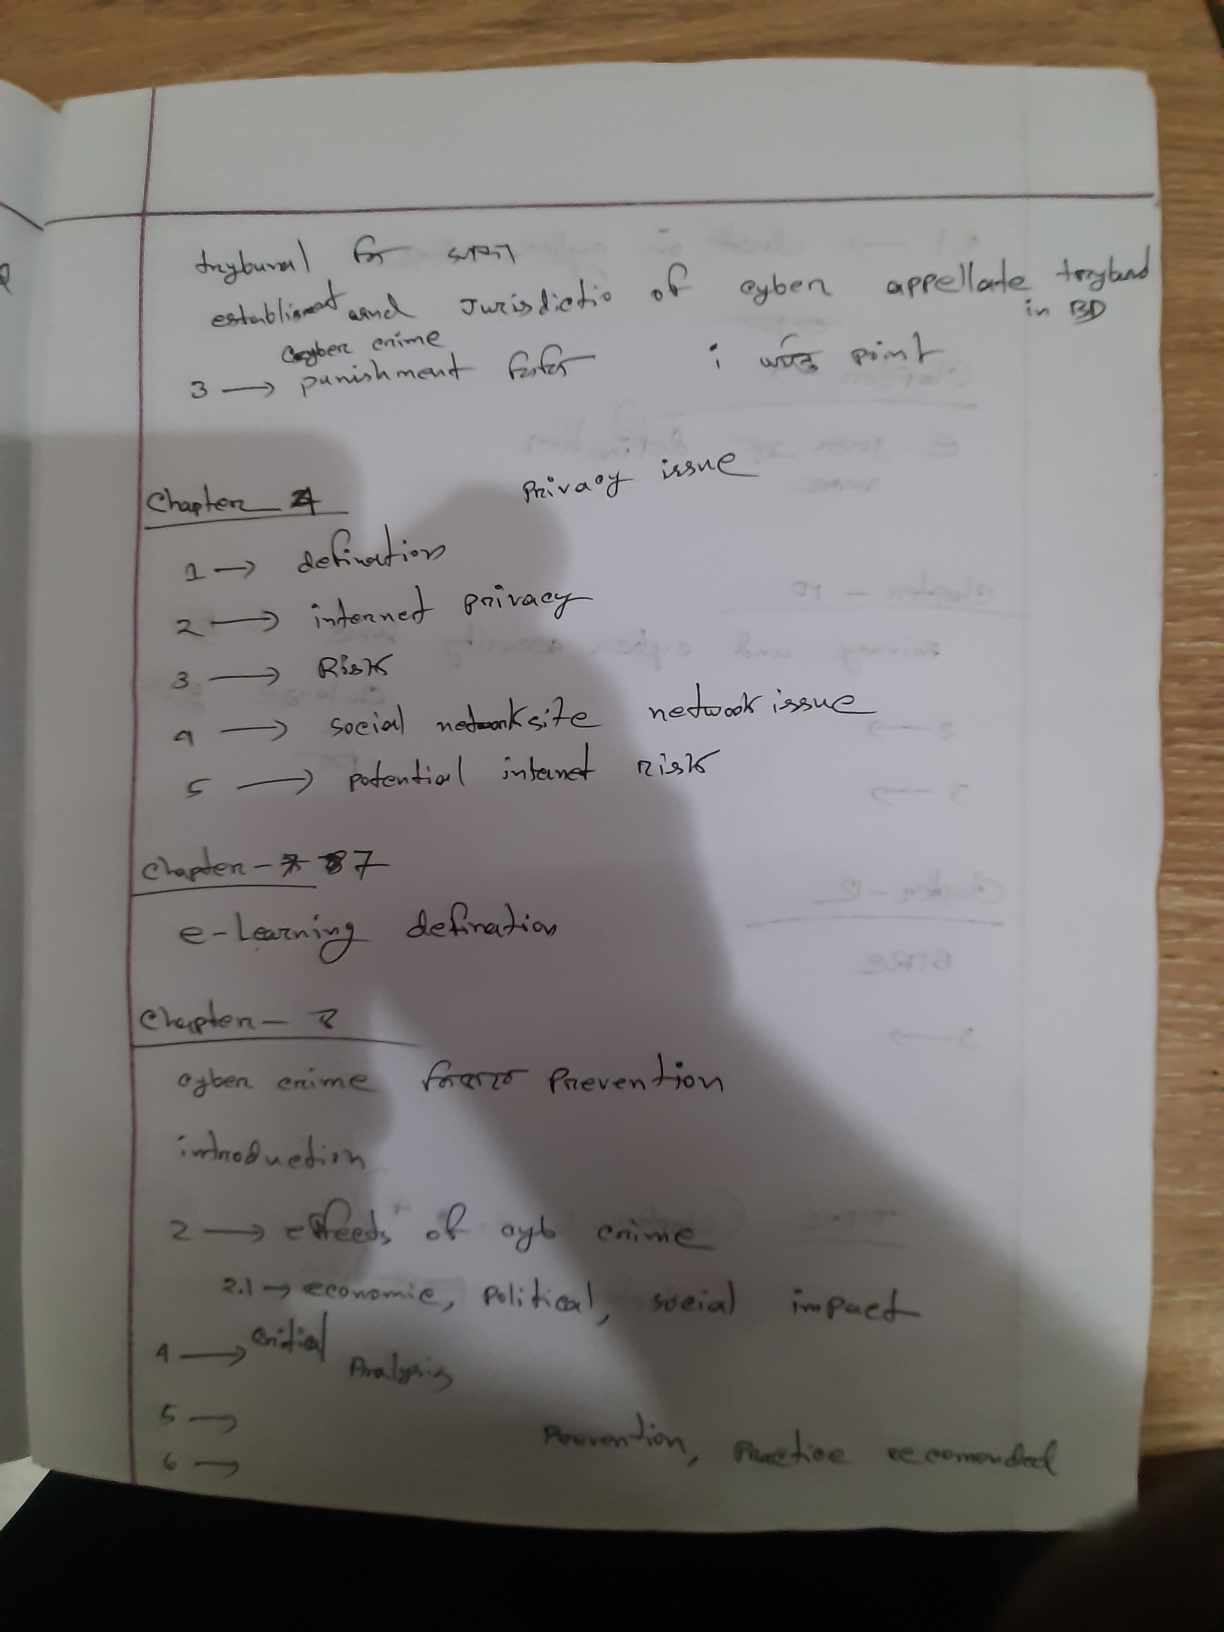 trybunal কি
establisment and Jurisdictio of cyber appellate trybund
in BD
cyber crime
3 → punishment point
Privacy issue
Chapter 4
1 → defination
2 → internet privacy
3 → Risk
4 → social network site network issue
5 → potential internet risk
Chapter - 7
e-Learning defination
Chapter - 8
cyber crime কিভাবে Prevention
introduction
2 → effects of cyb crime
2.1 → economic, political, social impact
4 → Critical Analysis
5 →
6 →
Prevention, Practice recomended